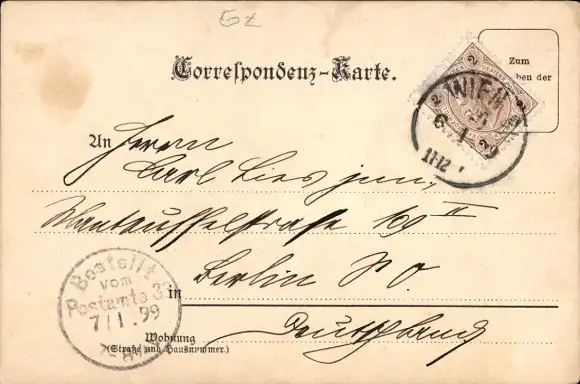 Gz
Correspondenz-Karte.
Zum
ben der
2 2
WIEN
6 1 99
11-12
An Herrn
Carl Lies jun.
Manteuffelstraße 109 II
in Berlin S. O.
Deutschland
Bestellt
vom
Postamte 33
7/1.99
Wohnung
(Straße und Hausnummer.)